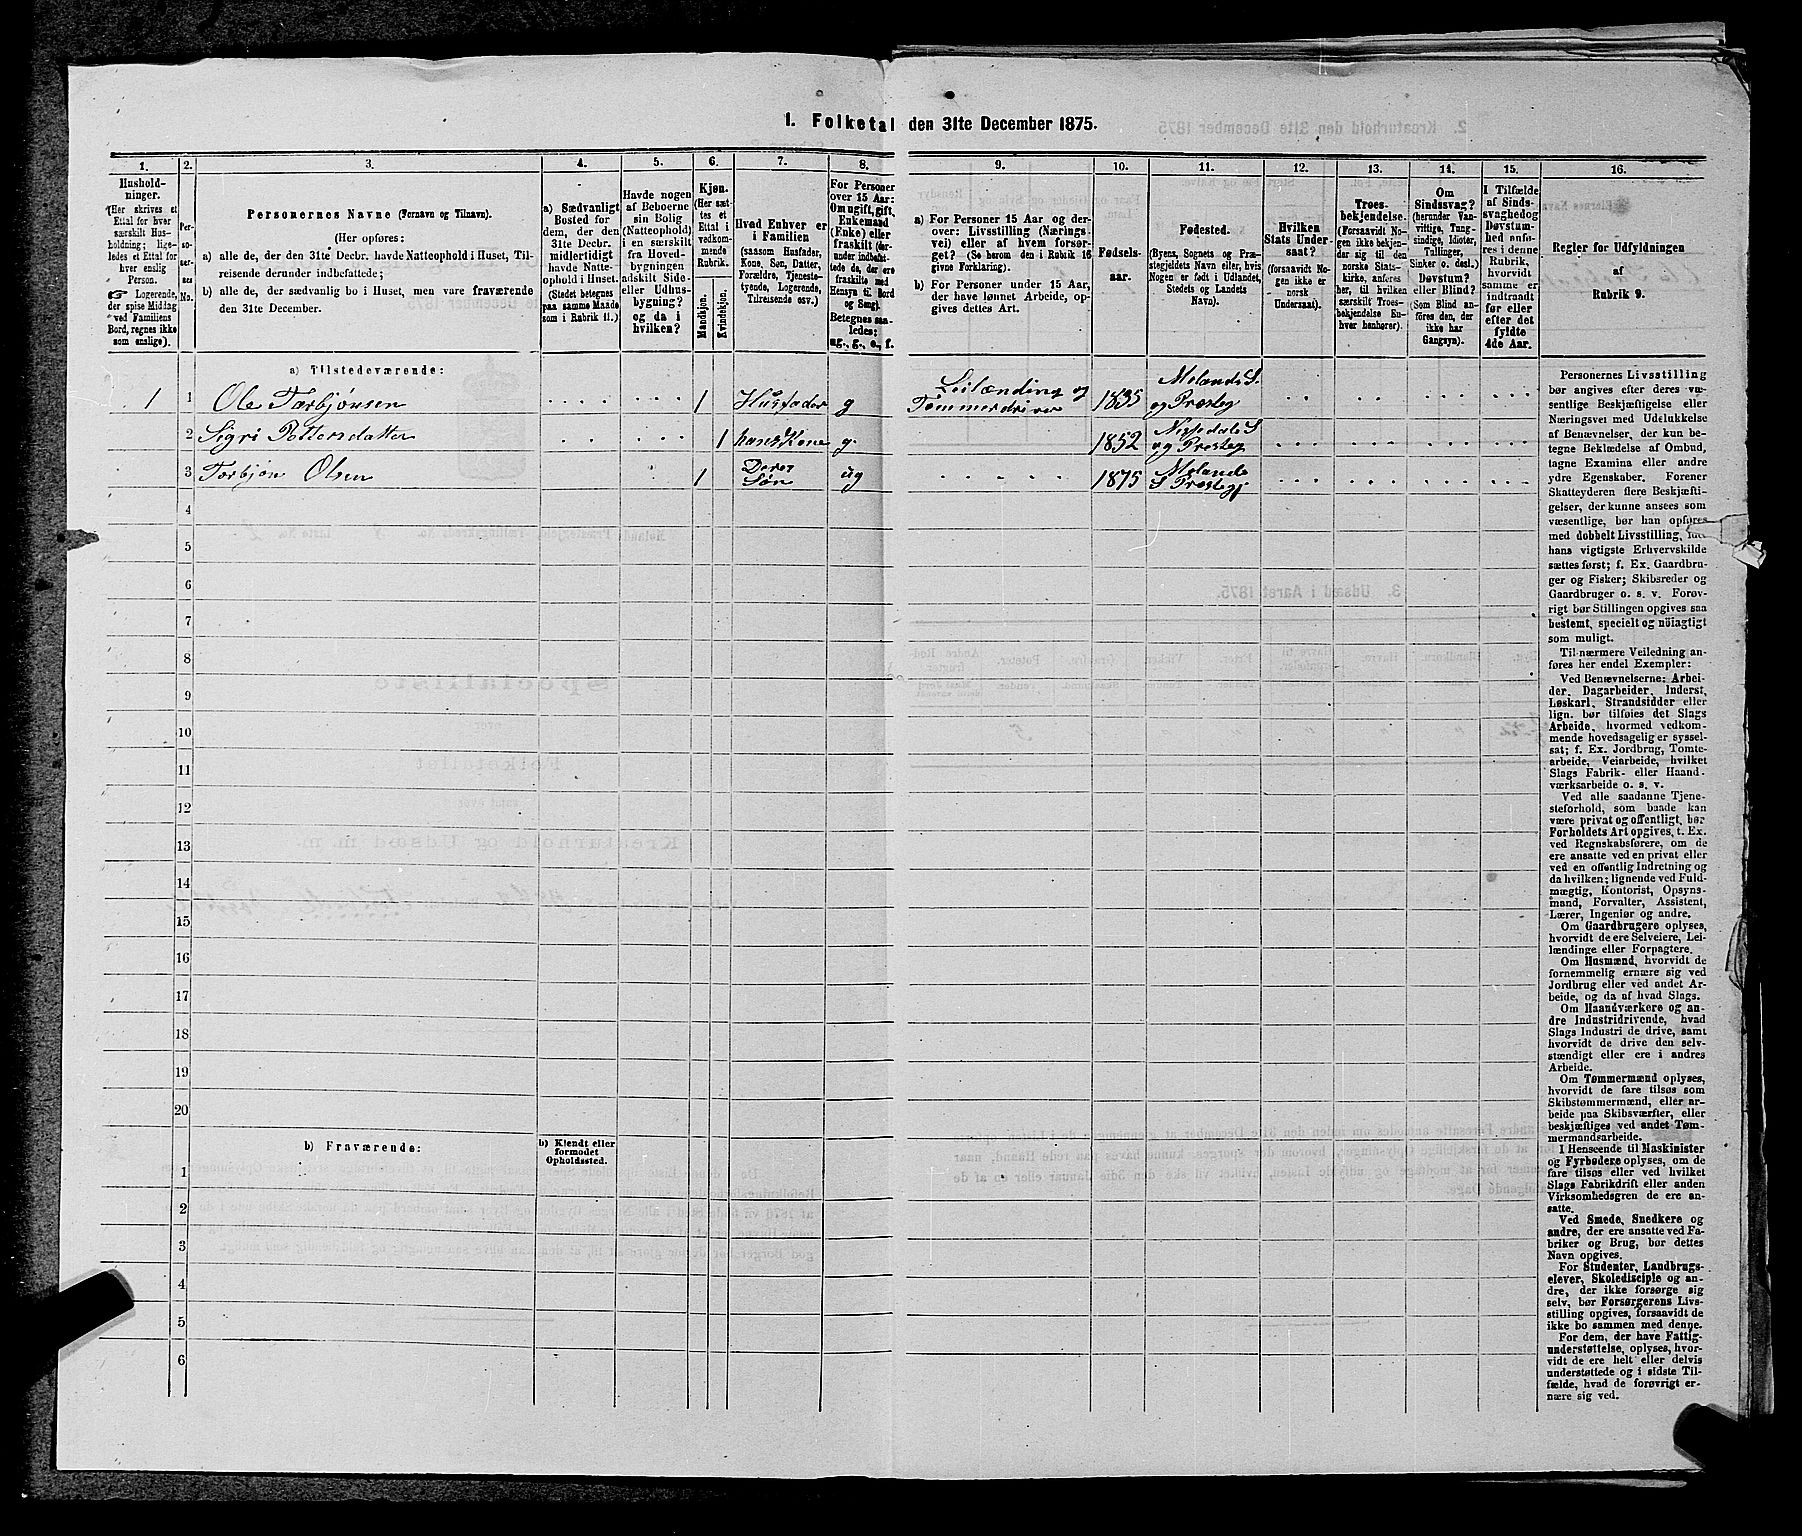 1. Folketal den 31te December 1875.
1.
2.
3.
4.
5.
6.
7.
8.
9.
10.
11.
12.
13.
14.
15.
16.
Hushold-
ninger.
(Her skrives et
Ettal for hver
særskilt Hus-
holdning; lige-
ledes et Ettal for
hver enslig
Person.
☞ Logerende,
der spise Middag
ved Familiens
Bord, regnes ikke
som enslige.)
Per-
so-
ner-
nes
No.
Personernes Navne (Fornavn og Tilnavn).
(Her opføres:
a) alle de, der den 31te Decbr. havde Natteophold i Huset, Til-
reisende derunder indbefattede;
b) alle de, der sædvanlig bo i Huset, men vare fraværende
den 31te December.
a) Sædvanligt
Bosted for
dem, der den
31te Decbr.
midlertidigt
havde Natte-
ophold i Huset.
(Stedet betegnes
paa samme Maade
som i Rubrik 11.)
Havde nogen
af Beboerne
sin Bolig
(Natteophold)
i en særskilt
fra Hoved-
bygningen
adskilt Side-
eller Udhus-
bygning?
og da i
hvilken?
Kjøn.
(Her sæt-
tes et
Ettal i
vedkom-
mende
Rubrik.
Mandkjøn.
Kvindekjøn.
Hvad Enhver er
i Familien
(saasom Husfader,
Kone, Søn, Datter,
Forældre, Tjeneste-
tyende, Logerende,
Tilreisende osv.)
For Personer
over 15 Aar:
Om ugift, gift,
Enkemand
(Enke) eller
fraskilt (der-
under indbefat-
tede de, der ere
fraskilte med
Hensyn til Bord
og Seng).
Betegnes saa-
ledes:
ug., g., e., f.
a) For Personer 15 Aar og der-
over: Livsstilling (Nærings-
vei) eller af hvem forsør-
get? (Se herom den i Rubrik 16
givne Forklaring).
b) For Personer under 15 Aar,
der have lønnet Arbeide, op-
gives dettes Art.
Fødsels-
aar.
Fødested.
(Byens, Sognets og Præ-
stegjeldets Navn eller, hvis
Nogen er født i Udlandet,
Stedets og Landets
Navn).
Hvilken
Stats Under-
saat?
(forsaavidt No-
gen ikke er
norsk
Undersaat).
Troes-
bekjendelse.
(Forsaavidt No-
gen ikke bekjen-
der sig til den
norske Stats-
kirke, anføres
her, til hvilken
særskilt Troes-
bekjendelse En-
hver henhører).
Om
Sindssvag?
(herunder Van-
vittige, Tung-
sindige, Idioter,
Tullinger,
Sinker o. desl.)
Døvstum?
eller Blind?
(Som Blind an-
føres den, der
ikke har
Gangsyn).
I Tilfælde
af Sinds-
svaghed og
Døvstum-
hed anfø-
res i denne
Rubrik,
hvorvidt
samme er
indtraadt
før eller
efter det
fyldte
4de Aar.
Regler for Udfyldningen
af
Rubrik 9.
a) Tilstedeværende:
1 1 Ole Tarbjönsen 1 Husfader g Leilænding og Tømmerdriver 1835 Molands S. og Præsteg
2 Sigri Pettersdatter 1 hans Kone g. 1852 Nissedals S og Præsteg
3 Torbjön Olsen 1 Deres Søn ug 1875 Molands S Præstegj
4
5
6
7
8
9
10
11
12
13
14
15
16
17
18
19
20
b) Fraværende:
b) Kjendt eller
formodet
Opholdssted.
1
2
3
4
5
6
Personernes Livsstilling
bør angives efter deres væ-
sentlige Beskjæftigelse eller
Næringsvei med Udelukkelse
af Benævnelser, der kun be-
tegne Beklædelse af Ombud,
tagne Examina eller andre
ydre Egenskaber. Forener
Skatteyderen flere Beskjæfti-
gelser, der kunne ansees som
væsentlige, bør han opføres
med dobbelt Livsstilling,
hans vigtigste Erhvervskilde
sættes først; f. Ex. Gaardbru-
ger og Fisker; Skibsreder og
Gaardbruger o. s. v. Forøv-
rigt bør Stillingen opgives saa
bestemt, specielt og nöiagtigt
som muligt.
Til nærmere Veiledning an-
føres her endel Exempler:
Ved Benævnelserne: Arbei-
der, Dagarbeider, Inderst,
Løskarl, Strandsidder eller
lign. bør tilføies det Slags
Arbeide, hvormed vedkom-
mende hovedsagelig er syssel-
sat; f. Ex. Jordbrug, Tomte-
arbeide, Veiarbeide, hvilket
Slags Fabrik- eller Haand-
værksarbeide o. s. v.
Ved alle saadanne Tjene-
steforhold, som baade kan
være privat og offentligt, bør
Forholdets Art opgives, t. Ex.
ved Regnskabsførere, om de
ere ansatte ved en privat eller
ved en offentlig Indretning og
da hvilken; lignende ved Fuld-
mægtig, Kontorist, Opsyns-
mand, Forvalter, Assistent,
Lærer, Ingeniør og andre.
Om Gaardbrugere oplyses,
hvorvidt de ere Selveiere, Lei-
lændinge eller Forpagtere.
Om Husmænd, hvorvidt de
fornemmelig ernære sig ved
Jordbrug eller ved andet Ar-
beide, og da af hvad Slags.
Om Haandværkere og an-
dre Industridrivende, hvad
Slags Industri de drive, samt
hvorvidt de drive den selv-
stændigt eller ere i andres
Arbeide.
Om Tømmermænd oplyses,
hvorvidt de fare tilsøs som
Skibstømmermænd, eller ar-
beide paa Skibsværfter, eller
beskjæftiges ved andet Tøm-
mermandsarbeide.
I Henseende til Maskinister
og Fyrbødere oplyses, om de
fare tilsøs eller ved hvilket
Slags Fabrikdrift eller anden
Virksomhedsgren de ere an-
satte.
Ved Smede, Snedkere og
andre, der ere ansatte ved Fa-
briker og Brug, bør dettes
Navn opgives.
For Studenter, Landbrugs-
elever, Skoledisciple og an-
dre, der ikke forsørge sig
selv, bør Forsørgerens Livs-
stilling opgives, forsaavidt de
ikke bo sammen med denne.
For dem, der have Fattig-
understøttelse, oplyses, hvor-
vidt de ere helt eller delvis
understøttede og i sidste Til-
fælde, hvad de forøvrigt er-
nære sig ved.